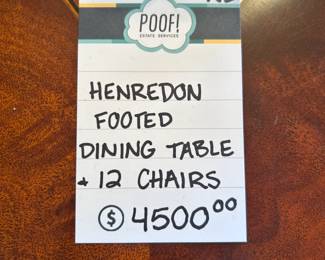 POOF!
ESTATE SERVICES
HENREDON
FOOTED
DINING TABLE
+ 12 CHAIRS
$ 4500⁰⁰